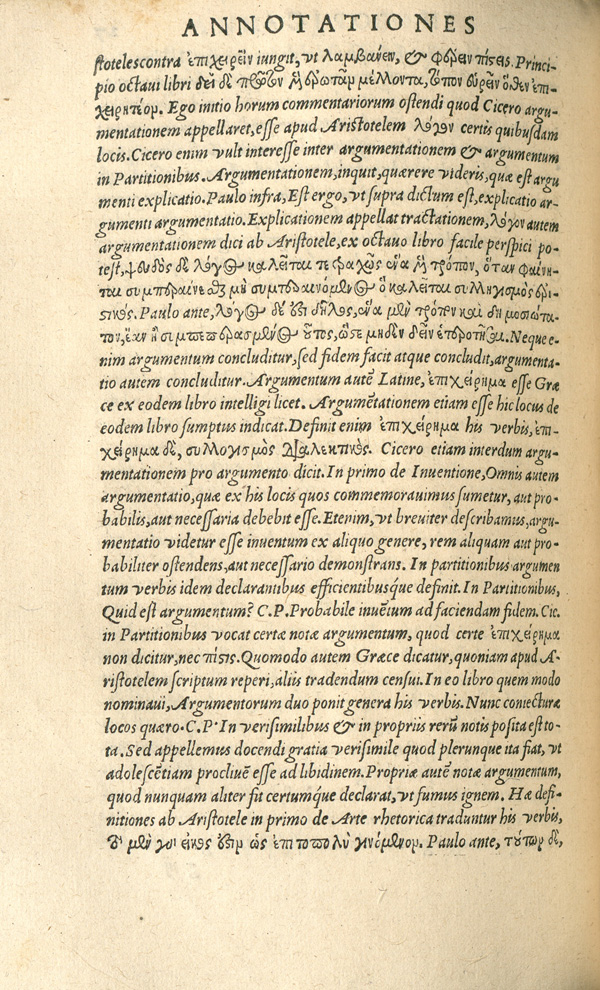 ANNOTATIONES
stoteles contra ἐπιχειρεῖν iungit, vt λαμβάνειν, & φέρειν πίστεις. Princi-
pio octaui libri δεῖ δὲ πρῶτον μὲν ἐρωτᾶν μέλλοντα, τόπον εὑρεῖν ὅθεν ἐπι-
χειρητέον. Ego initio horum commentariorum ostendi quod Cicero argu-
mentationem appellaret, esse apud Aristotelem λόγον certis quibusdam
locis. Cicero enim vult interesse inter argumentationem & argumentum
in Partitionibus. Argumentationem, inquit, quærere videris, quæ est argu
menti explicatio. Paulo infra, Est ergo, vt supra dictum est, explicatio ar-
gumenti argumentatio. Explicationem appellat tractationem, λόγον autem
argumentationem dici ab Aristotele, ex octauo libro facile perspici po-
test, ψευδὴς δὲ λόγος καλεῖται τετραχῶς ἕνα μὲν τρόπον, ὅταν φαίνη-
ται συμπεραίνεσθαι μὴ συμπεραινόμενος ὃ καλεῖται συλλογισμὸς ἐρι-
στικός. Paulo ante, λόγος δὲ ἐστι δῆλος, ἕνα μὲν τρόπον καὶ δημοσιώτα-
τον, ἐὰν ᾖ συμπεπερασμένος οὕτως, ὥστε μηδὲν δεῖν ἐπερωτῆσαι. Neque e-
nim argumentum concluditur, sed fidem facit atque concludit, argumenta-
tio autem concluditur. Argumentum autẽ Latine, ἐπιχείρημα esse Græ
ce ex eodem libro intelligi licet. Argumẽtationem etiam esse hic locus de
eodem libro sumptus indicat. Definit enim ἐπιχείρημα his verbis, ἐπι-
χείρημα δὲ, συλλογισμὸς διαλεκτικός. Cicero etiam interdum argu-
mentationem pro argumento dicit. In primo de Inuentione, Omnis autem
argumentatio, quæ ex his locis quos commemorauimus sumetur, aut pro-
babilis, aut necessaria debebit esse. Etenim, vt breuiter describamus, argu-
mentatio videtur esse inuentum ex aliquo genere, rem aliquam aut pro-
babiliter ostendens, aut necessario demonstrans. In partitionibus argumen
tum verbis idem declarantibus efficientibusq́ue definit. In Partitionibus,
Quid est argumentum? C.P. Probabile inuẽtum ad faciendam fidem. Cic.
in Partitionibus vocat certa notæ argumentum, quod certe ἐπιχείρημα
non dicitur, nec πίστις. Quomodo autem Græce dicatur, quoniam apud A-
ristotelem scriptum reperi, aliis tradendum censui. In eo libro quem modo
nominaui, Argumentorum duo ponit genera his verbis. Nunc coniecturæ
locos quæro. C.P. In verisimilibus & in propriis rerũ notis posita est to-
ta. Sed appellemus docendi gratia verisimile quod plerunque ita fiat, vt
adolescẽtiam procliuẽ esse ad libidinem. Propriæ autẽ notæ argumentum,
quod nunquam aliter fit certumq́ue declarat, vt fumus ignem. Hæ defi-
nitiones ab Aristotele in primo de Arte rhetorica traduntur his verbis,
τὸ μὲν γὰρ εἰκός ἐστιν ὡς ἐπιτοπολὺ γινόμενον. Paulo ante, τούτων δὲ,